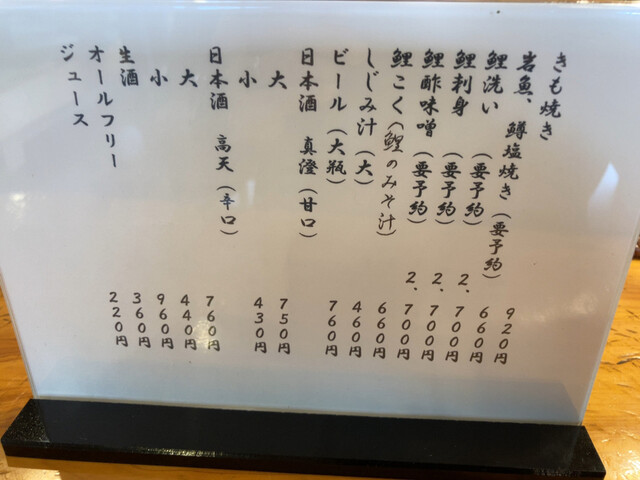 きも焼き 920円
岩魚、鱒塩焼き(要予約) 660円
鯉洗い (要予約) 2.700円
鯉刺身 (要予約) 2.700円
鯉酢味噌 (要予約) 2.700円
鯉こく(鯉のみそ汁) 660円
しじみ汁(大) 460円
ビール(大瓶) 760円
日本酒 真澄(甘口)
大 750円
小 430円
日本酒 高天(辛口)
大 760円
小 440円
生酒 960円
オールフリー 360円
ジュース 220円